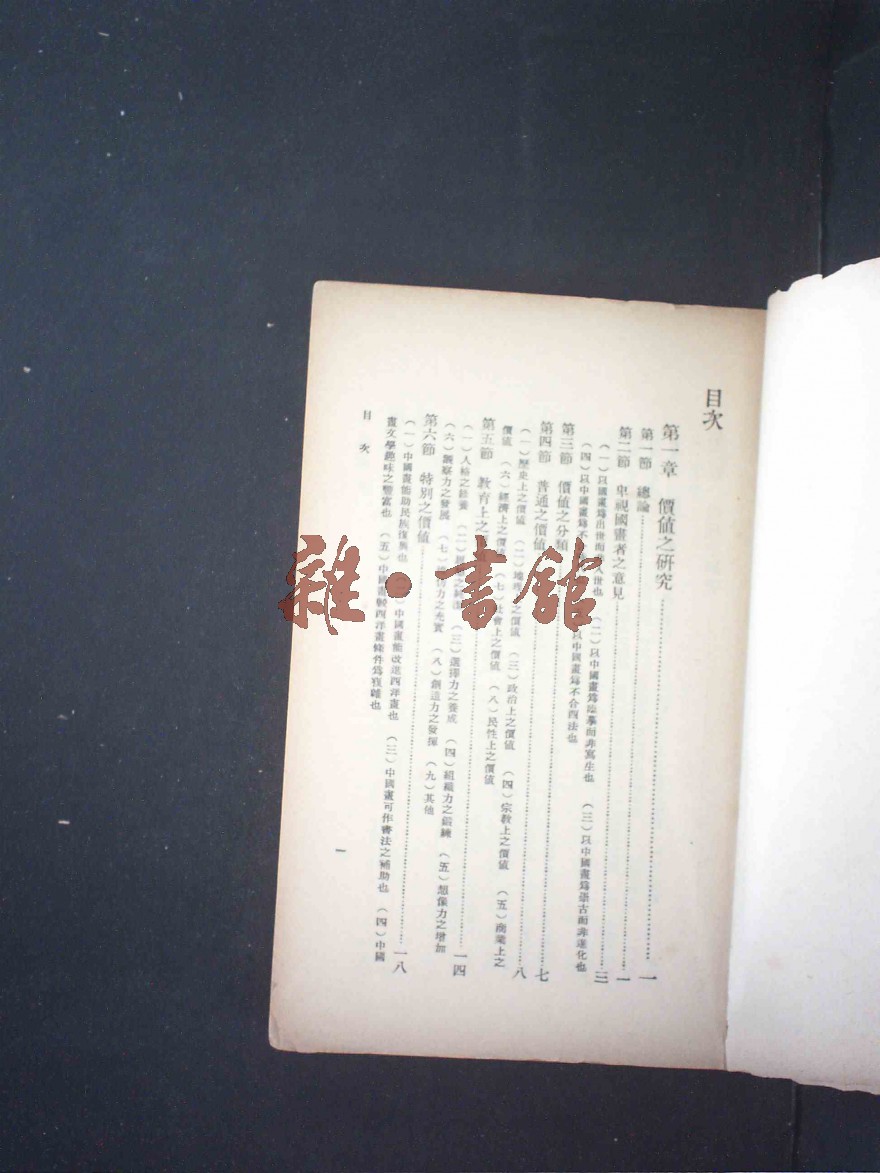 目次
第一章 價值之研究 一
第一節 總論 一
第二節 卑視國畫者之意見 三
（一）以國畫爲出世而 入世也 （二）以中國畫爲臨摹而非寫生也 （三）以中國畫爲張古而非進化也
（四）以中國畫爲不 以中國畫爲不合西法也
第三節 價值之分類 七
第四節 普通之價值 八
（一）歷史上之價值 （二）地理 之價值 （三）政治上之價值 （四）宗教上之價值 （五）商業上之
價值 （六）經濟上之價值 （七） 會上之價值 （八）民性上之價值
第五節 教育上之 一四
（一）人格之修養 （二） （三）選擇力之養成 （四）組織力之鍛鍊 （五）想像力之增加
（六）觀察力之發展 （七） 力之充實 （八）創造力之發揮 （九）其他
第六節 特別之價值 一八
（一）中國畫能助民族復興也 （二）中國畫能改進西洋畫也 （三）中國畫可作書法之補助也 （四）中國
畫文學趣味之豐富也 （五）中國畫較西洋畫條件爲複雜也
目 次
一
雜·書館